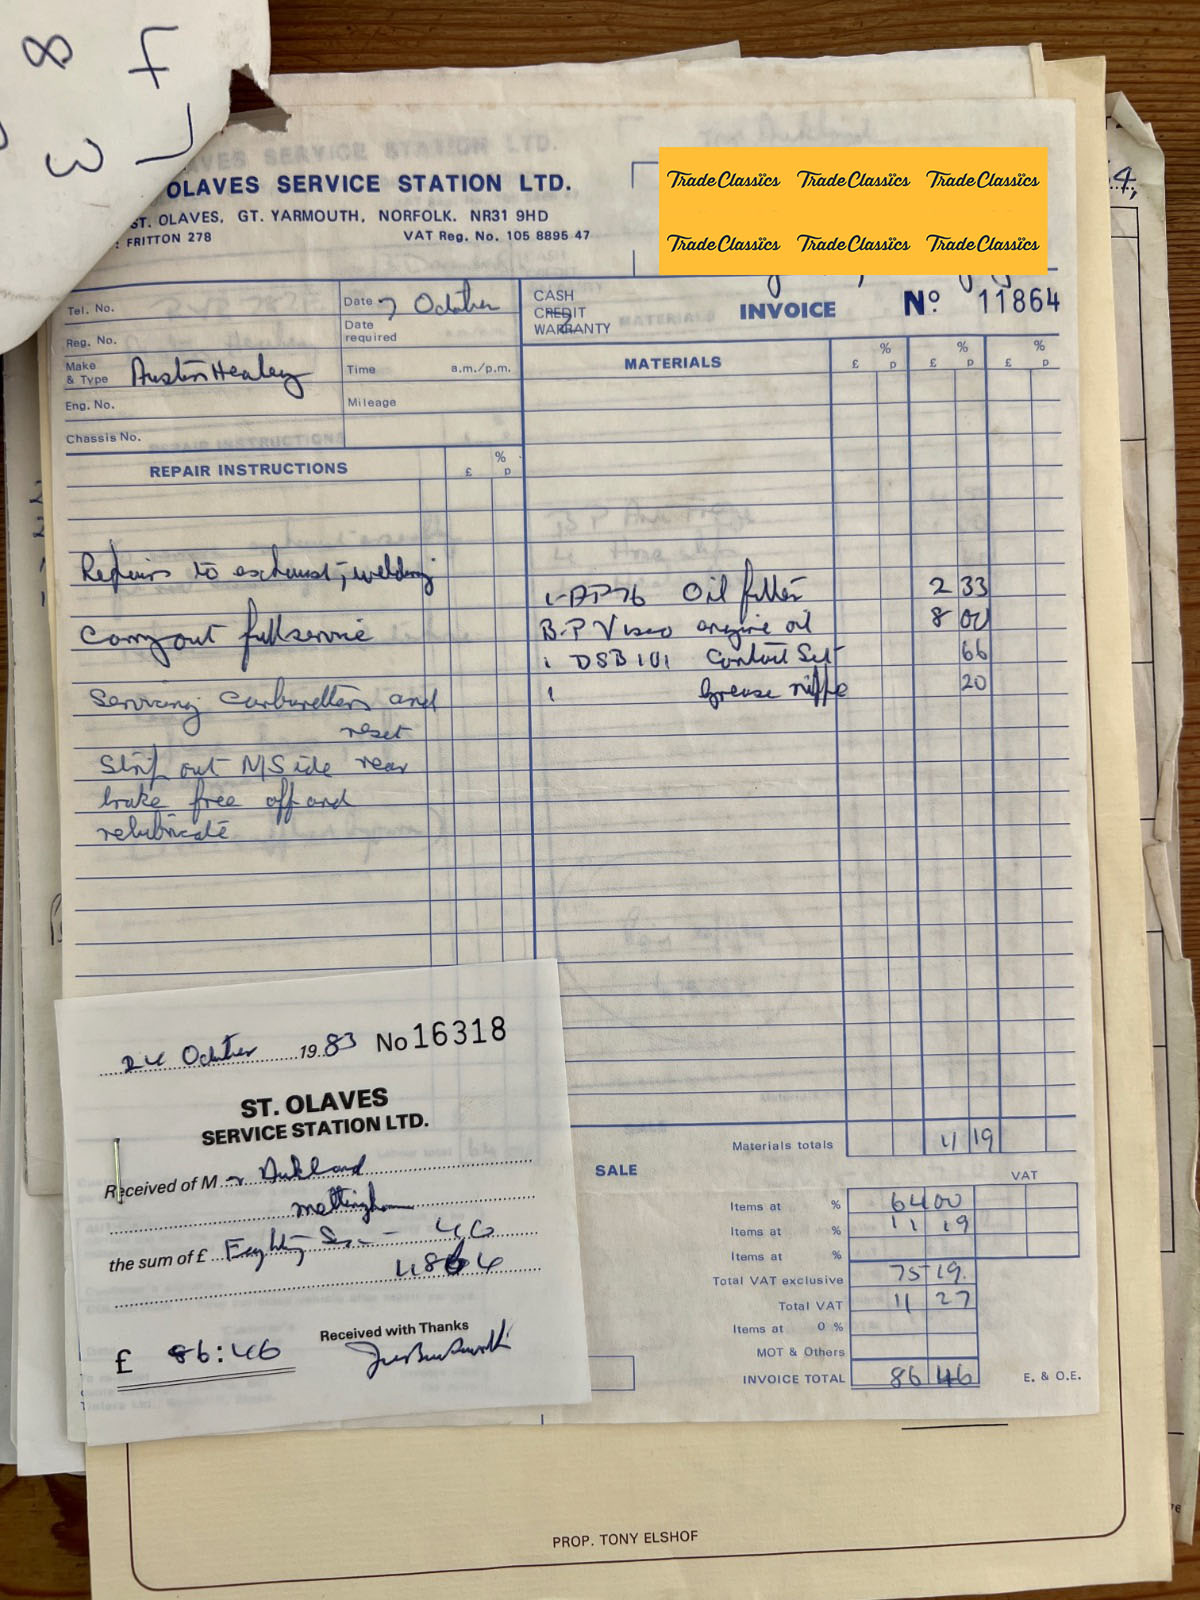 OLAVES SERVICE STATION LTD.
ST. OLAVES, GT. YARMOUTH, NORFOLK. NR31 9HD
: FRITTON 278 VAT Reg. No. 105 8895 47
TradeClassics TradeClassics TradeClassics
TradeClassics TradeClassics TradeClassics
Tel. No. Date 7 October
CASH
CREDIT
WARRANTY
INVOICE No. 11864
Reg. No. Date required
Make & Type Austin Healey Time a.m./p.m.
MATERIALS £ % p £ % p £ % p
Eng. No. Mileage
Chassis No.
REPAIR INSTRUCTIONS £ % p
Repairs to exhaust, welding
Carry out full service
Servicing carburettors and
reset
Strip out N/Side rear
brake free off and
relubricate
1 - AP76 Oil filter 2 33
B.P Visco engine oil 8 00
1 DSB101 Contact Set 66
1 Grease nipple 20
Materials totals 11 19
SALE VAT
Items at % 64 00
Items at % 11 19
Items at %
Total VAT exclusive 75 19.
Total VAT 11 27
Items at 0 %
MOT & Others
INVOICE TOTAL 86 46 E. & O.E.
24 October 1983 No 16318
ST. OLAVES
SERVICE STATION LTD.
Received of Mr Aukland
Mettingham
the sum of £ Eighty Six - 46
11864
£ 86:46 Received with Thanks
PROP. TONY ELSHOF